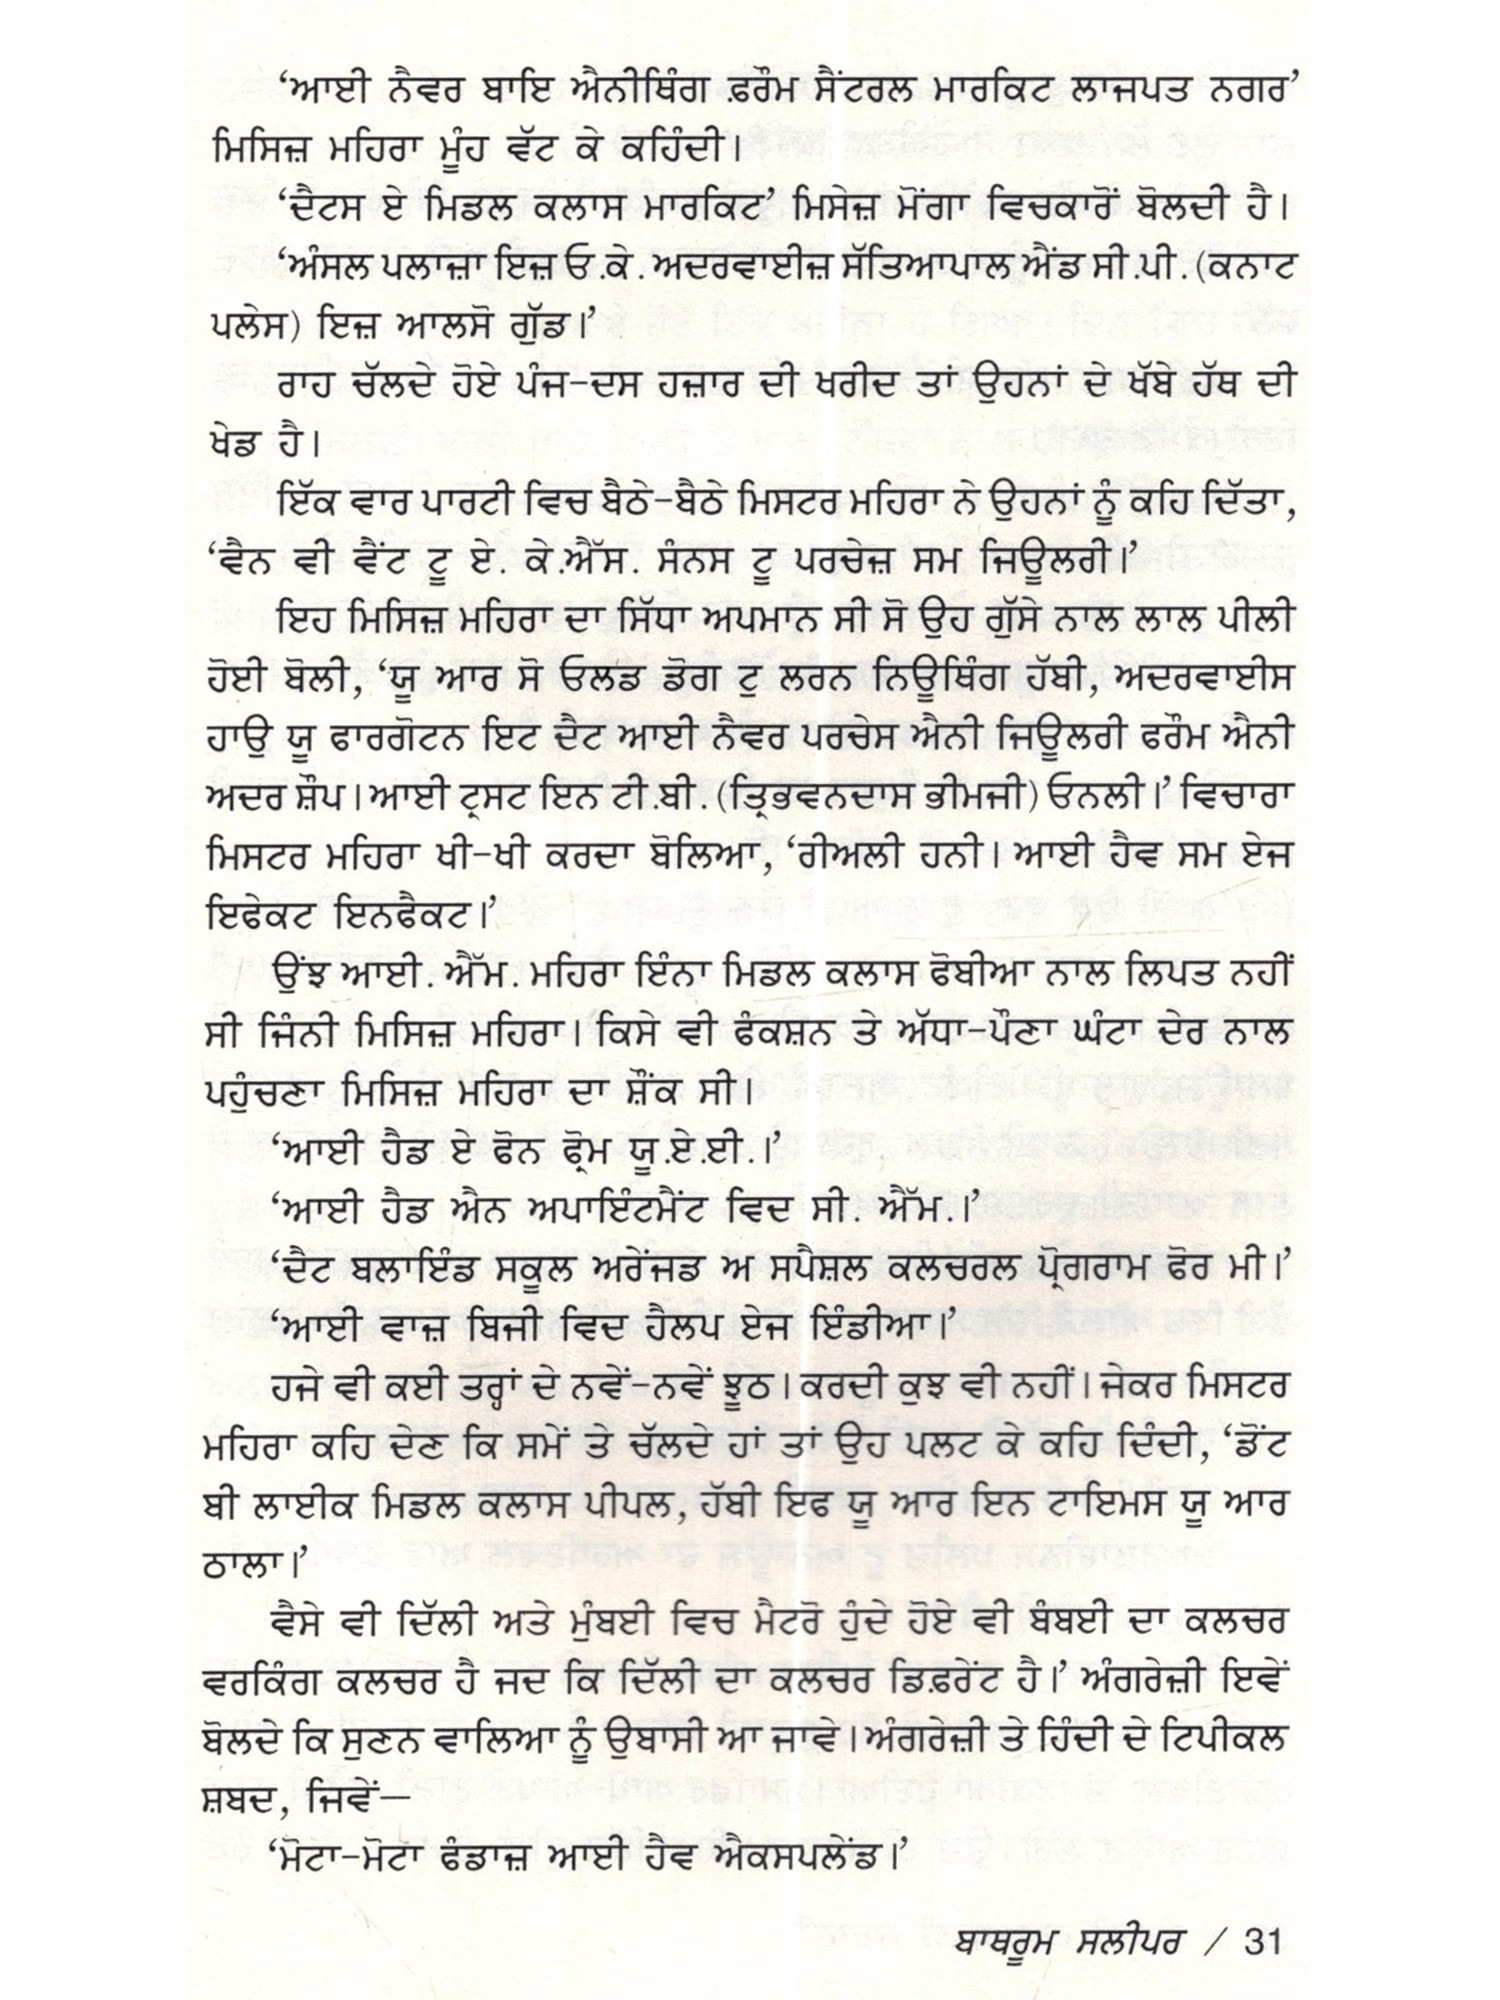 ‘ਆਈ ਨੈਵਰ ਬਾਇ ਐਨੀਥਿੰਗ ਫ਼ਰੌਮ ਸੈਂਟਰਲ ਮਾਰਕਿਟ ਲਾਜਪਤ ਨਗਰ’
ਮਿਸਿਜ਼ ਮਹਿਰਾ ਮੂੰਹ ਵੱਟ ਕੇ ਕਹਿੰਦੀ।
‘ਦੈਟਸ ਏ ਮਿਡਲ ਕਲਾਸ ਮਾਰਕਿਟ’ ਮਿਸੇਜ਼ ਮੋਂਗਾ ਵਿਚਕਾਰੋਂ ਬੋਲਦੀ ਹੈ।
‘ਅੰਸਲ ਪਲਾਜ਼ਾ ਇਜ਼ ਓ.ਕੇ. ਅਦਰਵਾਈਜ਼ ਸੱਤਿਆਪਾਲ ਐਂਡ ਸੀ.ਪੀ. (ਕਨਾਟ
ਪਲੇਸ) ਇਜ਼ ਆਲਸੋ ਗੁੱਡ।’
ਰਾਹ ਚੱਲਦੇ ਹੋਏ ਪੰਜ-ਦਸ ਹਜ਼ਾਰ ਦੀ ਖਰੀਦ ਤਾਂ ਉਹਨਾਂ ਦੇ ਖੱਬੇ ਹੱਥ ਦੀ
ਖੇਡ ਹੈ।
ਇੱਕ ਵਾਰ ਪਾਰਟੀ ਵਿਚ ਬੈਠੇ-ਬੈਠੇ ਮਿਸਟਰ ਮਹਿਰਾ ਨੇ ਉਹਨਾਂ ਨੂੰ ਕਹਿ ਦਿੱਤਾ,
‘ਵੈਨ ਵੀ ਵੈਂਟ ਟੂ ਏ. ਕੇ.ਐੱਸ. ਸੰਨਸ ਟੂ ਪਰਚੇਜ਼ ਸਮ ਜਿਊਲਰੀ।’
ਇਹ ਮਿਸਿਜ਼ ਮਹਿਰਾ ਦਾ ਸਿੱਧਾ ਅਪਮਾਨ ਸੀ ਸੋ ਉਹ ਗੁੱਸੇ ਨਾਲ ਲਾਲ ਪੀਲੀ
ਹੋਈ ਬੋਲੀ, ‘ਯੂ ਆਰ ਸੋ ਓਲਡ ਡੋਗ ਟੁ ਲਰਨ ਨਿਊਥਿੰਗ ਹੱਬੀ, ਅਦਰਵਾਈਸ
ਹਾਉ ਯੂ ਫਾਰਗੋਟਨ ਇਟ ਦੈਟ ਆਈ ਨੈਵਰ ਪਰਚੇਸ ਐਨੀ ਜਿਊਲਰੀ ਫਰੌਮ ਐਨੀ
ਅਦਰ ਸ਼ੌਪ। ਆਈ ਟ੍ਰਸਟ ਇਨ ਟੀ.ਬੀ. (ਤ੍ਰਿਭਵਨਦਾਸ ਭੀਮਜੀ) ਓਨਲੀ।’ ਵਿਚਾਰਾ
ਮਿਸਟਰ ਮਹਿਰਾ ਖੀ-ਖੀ ਕਰਦਾ ਬੋਲਿਆ, ‘ਰੀਅਲੀ ਹਨੀ। ਆਈ ਹੈਵ ਸਮ ਏਜ
ਇਫੇਕਟ ਇਨਫੈਕਟ।’
ਉਂਝ ਆਈ. ਐੱਮ. ਮਹਿਰਾ ਇੰਨਾ ਮਿਡਲ ਕਲਾਸ ਫੋਬੀਆ ਨਾਲ ਲਿਪਤ ਨਹੀਂ
ਸੀ ਜਿੰਨੀ ਮਿਸਿਜ਼ ਮਹਿਰਾ। ਕਿਸੇ ਵੀ ਫੰਕਸ਼ਨ ਤੇ ਅੱਧਾ-ਪੌਣਾ ਘੰਟਾ ਦੇਰ ਨਾਲ
ਪਹੁੰਚਣਾ ਮਿਸਿਜ਼ ਮਹਿਰਾ ਦਾ ਸ਼ੌਂਕ ਸੀ।
‘ਆਈ ਹੈਡ ਏ ਫੋਨ ਫ੍ਰੋਮ ਯੂ.ਏ.ਈ.।’
‘ਆਈ ਹੈਡ ਐਨ ਅਪਾਇੰਟਮੈਂਟ ਵਿਦ ਸੀ. ਐੱਮ.।’
‘ਦੈਟ ਬਲਾਇੰਡ ਸਕੂਲ ਅਰੇਂਜਡ ਅ ਸਪੈਸ਼ਲ ਕਲਚਰਲ ਪ੍ਰੋਗਰਾਮ ਫੋਰ ਮੀ।’
‘ਆਈ ਵਾਜ਼ ਬਿਜੀ ਵਿਦ ਹੈਲਪ ਏਜ ਇੰਡੀਆ।’
ਹਜੇ ਵੀ ਕਈ ਤਰ੍ਹਾਂ ਦੇ ਨਵੇਂ-ਨਵੇਂ ਝੂਠ। ਕਰਦੀ ਕੁਝ ਵੀ ਨਹੀਂ। ਜੇਕਰ ਮਿਸਟਰ
ਮਹਿਰਾ ਕਹਿ ਦੇਣ ਕਿ ਸਮੇਂ ਤੇ ਚੱਲਦੇ ਹਾਂ ਤਾਂ ਉਹ ਪਲਟ ਕੇ ਕਹਿ ਦਿੰਦੀ, ‘ਡੋਂਟ
ਬੀ ਲਾਈਕ ਮਿਡਲ ਕਲਾਸ ਪੀਪਲ, ਹੱਬੀ ਇਫ ਯੂ ਆਰ ਇਨ ਟਾਇਮਸ ਯੂ ਆਰ
ਠਾਲਾ।’
ਵੈਸੇ ਵੀ ਦਿੱਲੀ ਅਤੇ ਮੁੰਬਈ ਵਿਚ ਮੈਟਰੋ ਹੁੰਦੇ ਹੋਏ ਵੀ ਬੰਬਈ ਦਾ ਕਲਚਰ
ਵਰਕਿੰਗ ਕਲਚਰ ਹੈ ਜਦ ਕਿ ਦਿੱਲੀ ਦਾ ਕਲਚਰ ਡਿਫ਼ਰੇਂਟ ਹੈ।’ ਅੰਗਰੇਜ਼ੀ ਇਵੇਂ
ਬੋਲਦੇ ਕਿ ਸੁਣਨ ਵਾਲਿਆ ਨੂੰ ਉਬਾਸੀ ਆ ਜਾਵੇ। ਅੰਗਰੇਜ਼ੀ ਤੇ ਹਿੰਦੀ ਦੇ ਟਿਪੀਕਲ
ਸ਼ਬਦ, ਜਿਵੇਂ—
‘ਮੋਟਾ-ਮੋਟਾ ਫੰਡਾਜ਼ ਆਈ ਹੈਵ ਐਕਸਪਲੇਂਡ।’
ਬਾਥਰੂਮ ਸਲੀਪਰ / 31